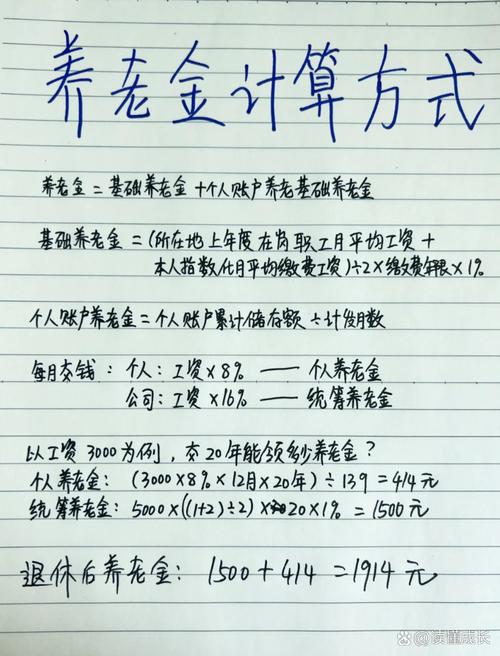 养老金计算方式
养老金=基础养老金+个人账户养老基础养老金
基础养老金=(所在地上年度在岗职工月平均工资+
本人指数化月平均缴费工资)÷2×缴费年限×1%
个人账户养老金=个人账户累计储存额÷计发月数
每月交钱:个人:工资×8% —— 个养老金
公司:工资×16% —— 统筹养老金
以工资3000为例,交20年能领多少养老金?
个人养老金:(3000×8%×12月×20年)÷139=414元
统筹养老金:5000×((1+2)÷2)×20×1%=1500元
退休后养老金:1500+414=1914元
@读懂成长